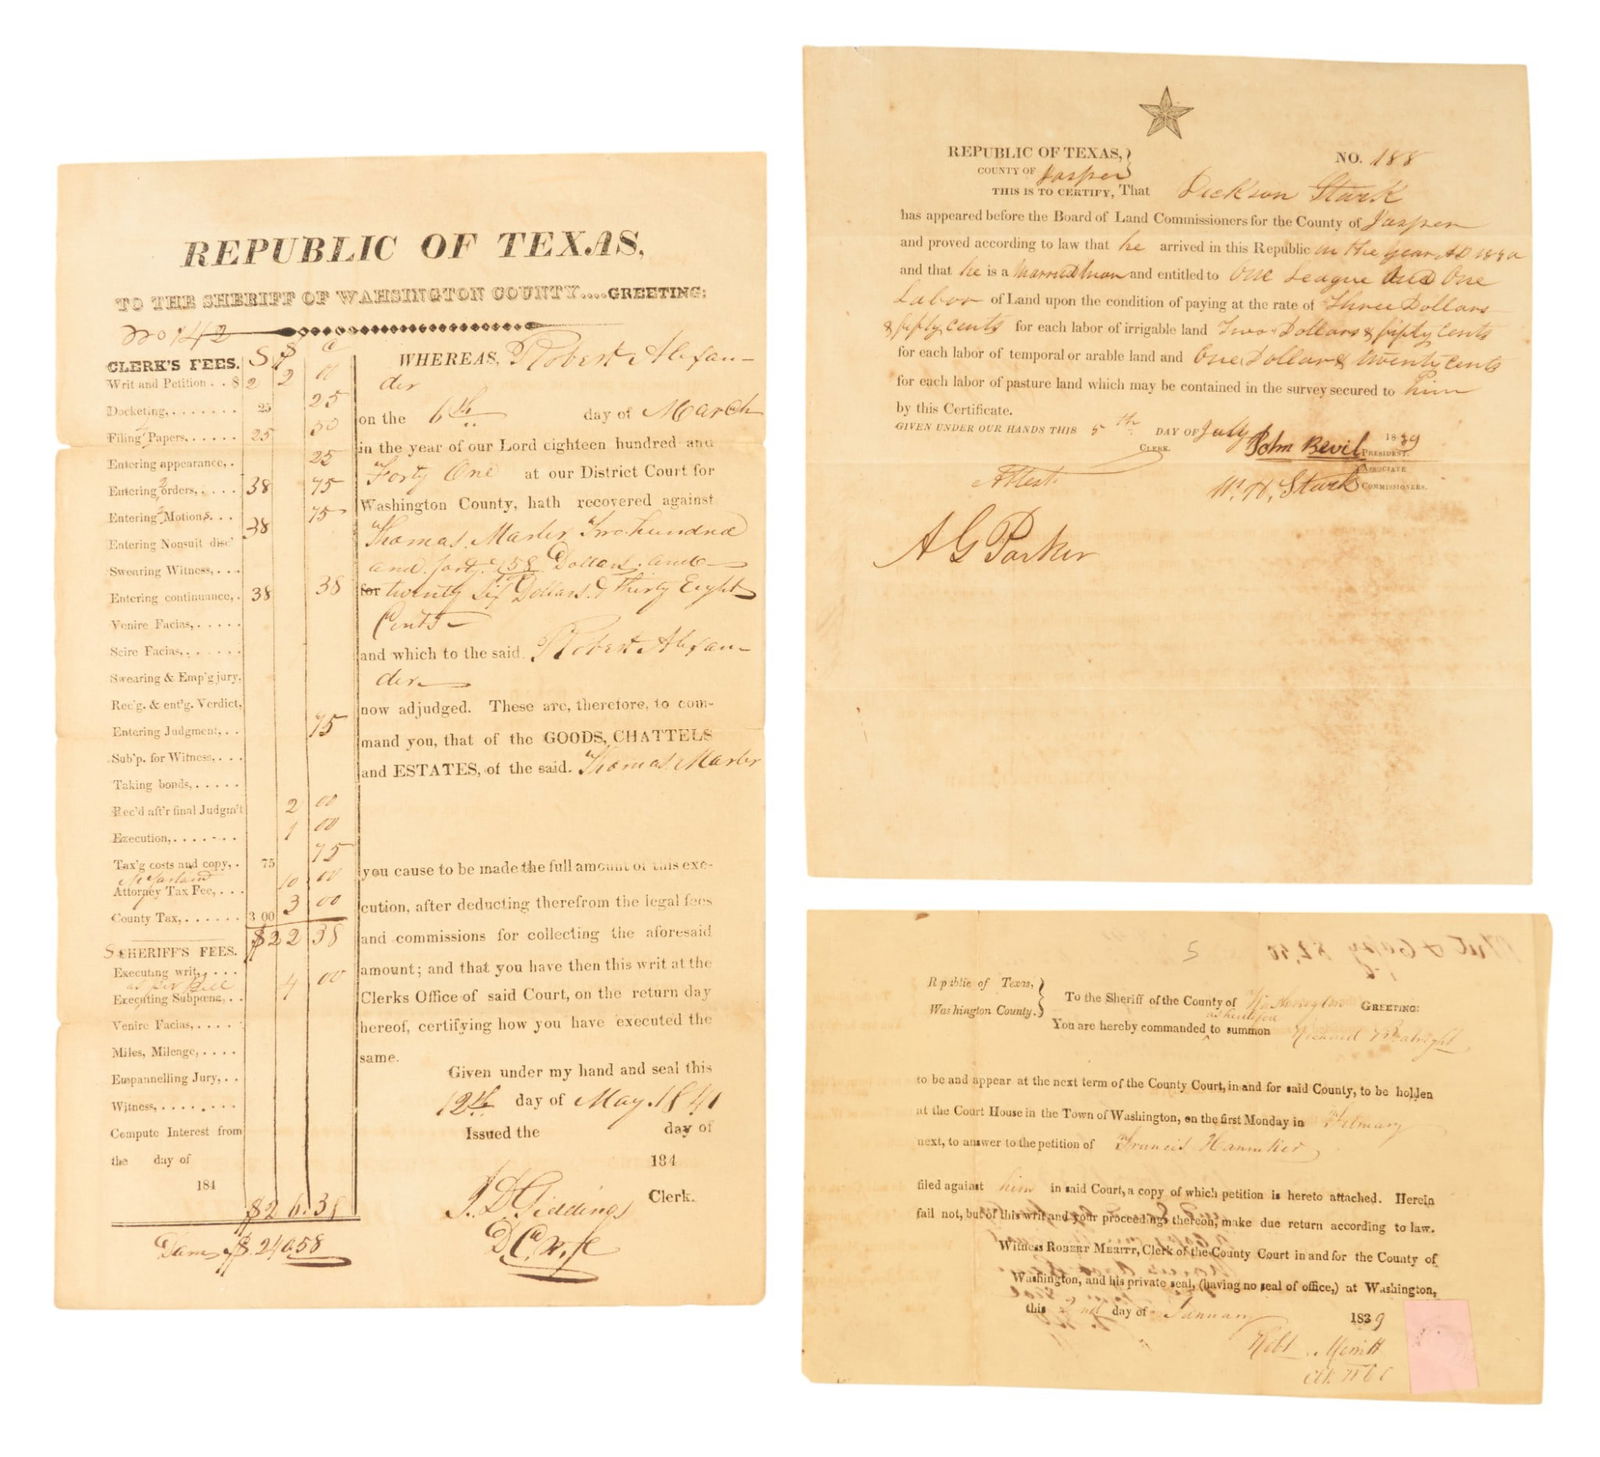 REPUBLIC OF TEXAS,
TO THE SHERIFF OF WAHSINGTON COUNTY....GREETING:
No 142
CLERK'S FEES. $ $ c
Writ and Petition . . $ 2 2
Docketing, . . . . . . . 25 25
Filing Papers. . . . . . 25 50
Entering appearance, . 25
Entering 2 orders, . . . . 38 75
Entering 2 Motions. . . 38 75
Entering Nonsuit disc'
Swearing Witness, . . .
Entering continuance, . 38 38
Venire Facias, . . . . .
Scire Facias, . . . . . .
Swearing & Emp'g jury,
Rec'g. & ent'g. Verdict,
Entering Judgment, . . 75
Sub'p. for Witness, . . .
Taking bonds, . . . . .
Rec'd aft'r final Judgm't 2 00
Execution, . . . . . . . 1 00
Tax'g costs and copy, . 75 75
Attorney Tax Fee, . . . 10 00
County Tax, . . . . . . 3 00 3 00
$22 38
SHERIFF'S FEES.
Executing writ, . . . 4 00
as per Bill
Executing Subpœna, . .
Venire Facias, . . . . .
Miles, Mileage, . . . .
Empannelling Jury, . .
Witness, . . . . . . . .
Compute Interest from
the day of
184
$26.38
Dam $240.58
WHEREAS, Robert Alexan-
der
on the 6th day of March
in the year of our Lord eighteen hundred and
Forty One at our District Court for
Washington County, hath recovered against
Thomas Marler Two hundred
and forty 58 Dollars and
for twenty Six Dollars & Thirty Eight
Cents
and which to the said Robert Alexan-
der
now adjudged. These are, therefore, to com-
mand you, that of the GOODS, CHATTELS
and ESTATES, of the said. Thomas Marler
you cause to be made the full amount of this exe-
cution, after deducting therefrom the legal fees
and commissions for collecting the aforesaid
amount; and that you have then this writ at the
Clerks Office of said Court, on the return day
hereof, certifying how you have executed the
same.
Given under my hand and seal this
12th day of May 1841
Issued the day of
184
J. D. Giddings Clerk.
REPUBLIC OF TEXAS,
COUNTY OF Jasper
NO. 188
THIS IS TO CERTIFY, That Dickson Stark
has appeared before the Board of Land Commissioners for the County of Jasper
and proved according to law that he arrived in this Republic in the year AD 1830
and that he is a married man and entitled to One League and One
Labor of Land upon the condition of paying at the rate of Three Dollars
& fifty cents for each labor of irrigable land Two Dollars & fifty cents
for each labor of temporal or arable land and One Dollar & twenty cents
for each labor of pasture land which may be contained in the survey secured to him
by this Certificate.
GIVEN UNDER OUR HANDS THIS 5th DAY OF July 1839
CLERK. John Bevil PRESIDENT.
Attest W. H. Stark ASSOCIATE
COMMISSIONERS.
A G Parker
5
Republic of Texas,
Washington County.
To the Sheriff of the County of Washington GREETING:
as heretofore
You are hereby commanded to summon Richard
to be and appear at the next term of the County Court, in and for said County, to be holden
at the Court House in the Town of Washington, on the first Monday in February
next, to answer to the petition of Francis
filed against him in said Court, a copy of which petition is hereto attached. Herein
fail not, but of this writ and your proceedings thereon, make due return according to law.
Witness ROBERT MERITT, Clerk of the County Court in and for the County of
Washington, and his private seal, (having no seal of office,) at Washington,
this 2nd day of January 1839
Robt Merritt
Clk W C C